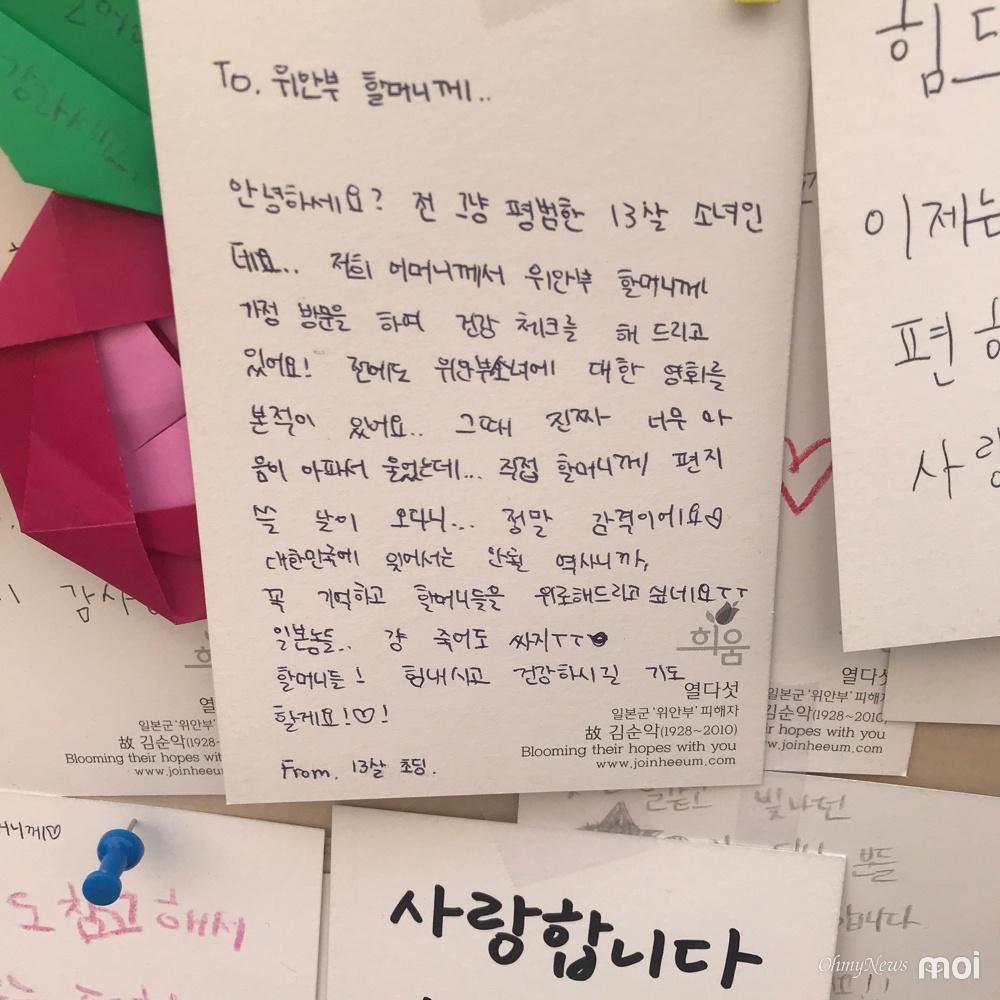 To. 위안부 할머니께..
안녕하세요? 전 그냥 평범한 13살 소녀인
데요.. 저희 어머니께서 위안부 할머니께
가정 방문을 하여 건강 체크를 해 드리고
있어요! 전에도 위안부소녀에 대한 영화를
본적이 있어요.. 그때 진짜 너무 마
음이 아파서 울었는데... 직접 할머니께 편지
쓸 날이 오다니... 정말 감격이에요♡
대한민국에 있어서는 안될 역사니까,
꼭 기억하고 할머니들을 위로해드리고 싶네요ㅜㅜ
일본놈들.. 걍 죽어도 싸지ㅜㅜ♥
할머니들! 힘내시고 건강하시길 기도
할게요!♡!
From. 13살 초딩.
희움
열다섯
일본군 '위안부' 피해자
故 김순악(1928~2010)
Blooming their hopes with you
www.joinheeum.com
힘드
이제는
편
사랑
감사
열
일본군 '위안부'
故 김순악(1928~
Blooming their hopes with
www.joinheeum.com
열다섯
일본군 '위안부' 피해
김순악(1928~2010
their hopes with you
www.joinheeum.com
머니께♡
도 참고 해서
사랑합니다
빛나던
분들
합니다
OhmyNews moi